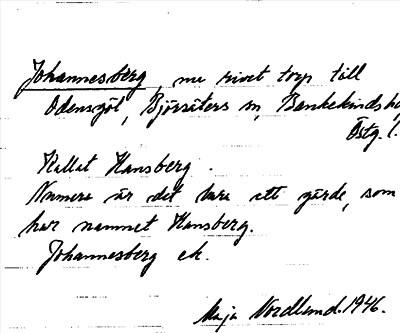 Johannesberg, nu rivet torp till
Odensgöl, Björsäters sn, Bankekinds hd
Östg. l.
Kallat Hansberg.
Numera är det bara ett gärde, som
har namnet Hansberg.
Johannesberg ek.
Maja Nordlund. 1946.